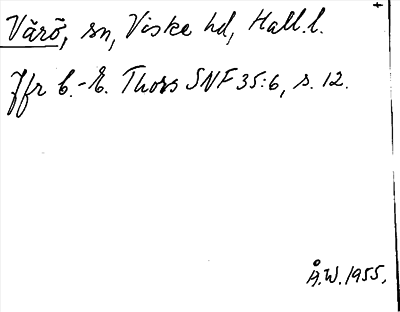 Värö, sn, Viske hd, Hall.l.
Jfr C.-E. Thors SNF 35:6, s. 12.
Å.W. 1955.